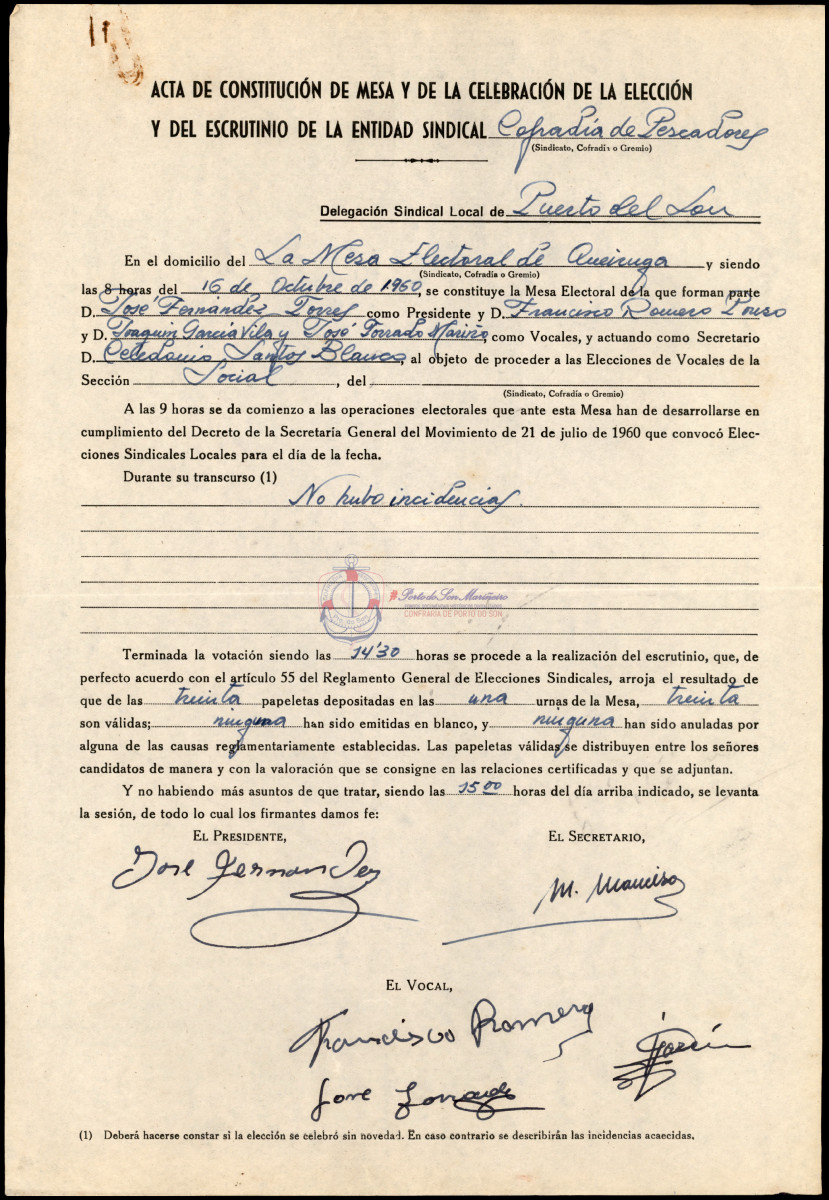 ACTA DE CONSTITUCIÓN DE MESA Y DE LA CELEBRACIÓN DE LA ELECCIÓN
Y DEL ESCRUTINIO DE LA ENTIDAD SINDICAL Cofradía de Pescadores
(Sindicato, Cofradía o Gremio)
Delegación Sindical Local de Puerto del Son
En el domicilio del La Mesa Electoral de Queiruga y siendo
(Sindicato, Cofradía o Gremio)
las 8 horas del 16 de Octubre de 1960, se constituye la Mesa Electoral de la que forman parte
D. José Fernández Torres como Presidente y D. Francisco Romero
y D. Joaquin García Vila y José Torrado Mariño como Vocales, y actuando como Secretario
D. Celedonio Santos Blanco, al objeto de proceder a las Elecciones de Vocales de la
Sección Social, del
(Sindicato, Cofradía o Gremio)
A las 9 horas se da comienzo a las operaciones electorales que ante esta Mesa han de desarrollarse en
cumplimiento del Decreto de la Secretaría General del Movimiento de 21 de julio de 1960 que convocó Elec-
ciones Sindicales Locales para el día de la fecha.
Durante su transcurso (1)
No hubo incidencias.
#Porto do Son Mariñeiro
CONFRARÍA DE PORTO DO SON
Terminada la votación siendo las 14'30 horas se procede a la realización del escrutinio, que, de
perfecto acuerdo con el artículo 55 del Reglamento General de Elecciones Sindicales, arroja el resultado de
que de las treinta papeletas depositadas en las una urnas de la Mesa, treinta
son válidas; ninguna han sido emitidas en blanco, y ninguna han sido anuladas por
alguna de las causas reglamentariamente establecidas. Las papeletas válidas se distribuyen entre los señores
candidatos de manera y con la valoración que se consigne en las relaciones certificadas y que se adjuntan.
Y no habiendo más asuntos de que tratar, siendo las 15 00 horas del día arriba indicado, se levanta
la sesión, de todo lo cual los firmantes damos fe:
EL PRESIDENTE,
EL SECRETARIO,
Jose Fernandez
EL VOCAL,
Francisco Romero
García
Jose Torrado
(1) Deberá hacerse constar si la elección se celebró sin novedad. En caso contrario se describirán las incidencias acaecidas.